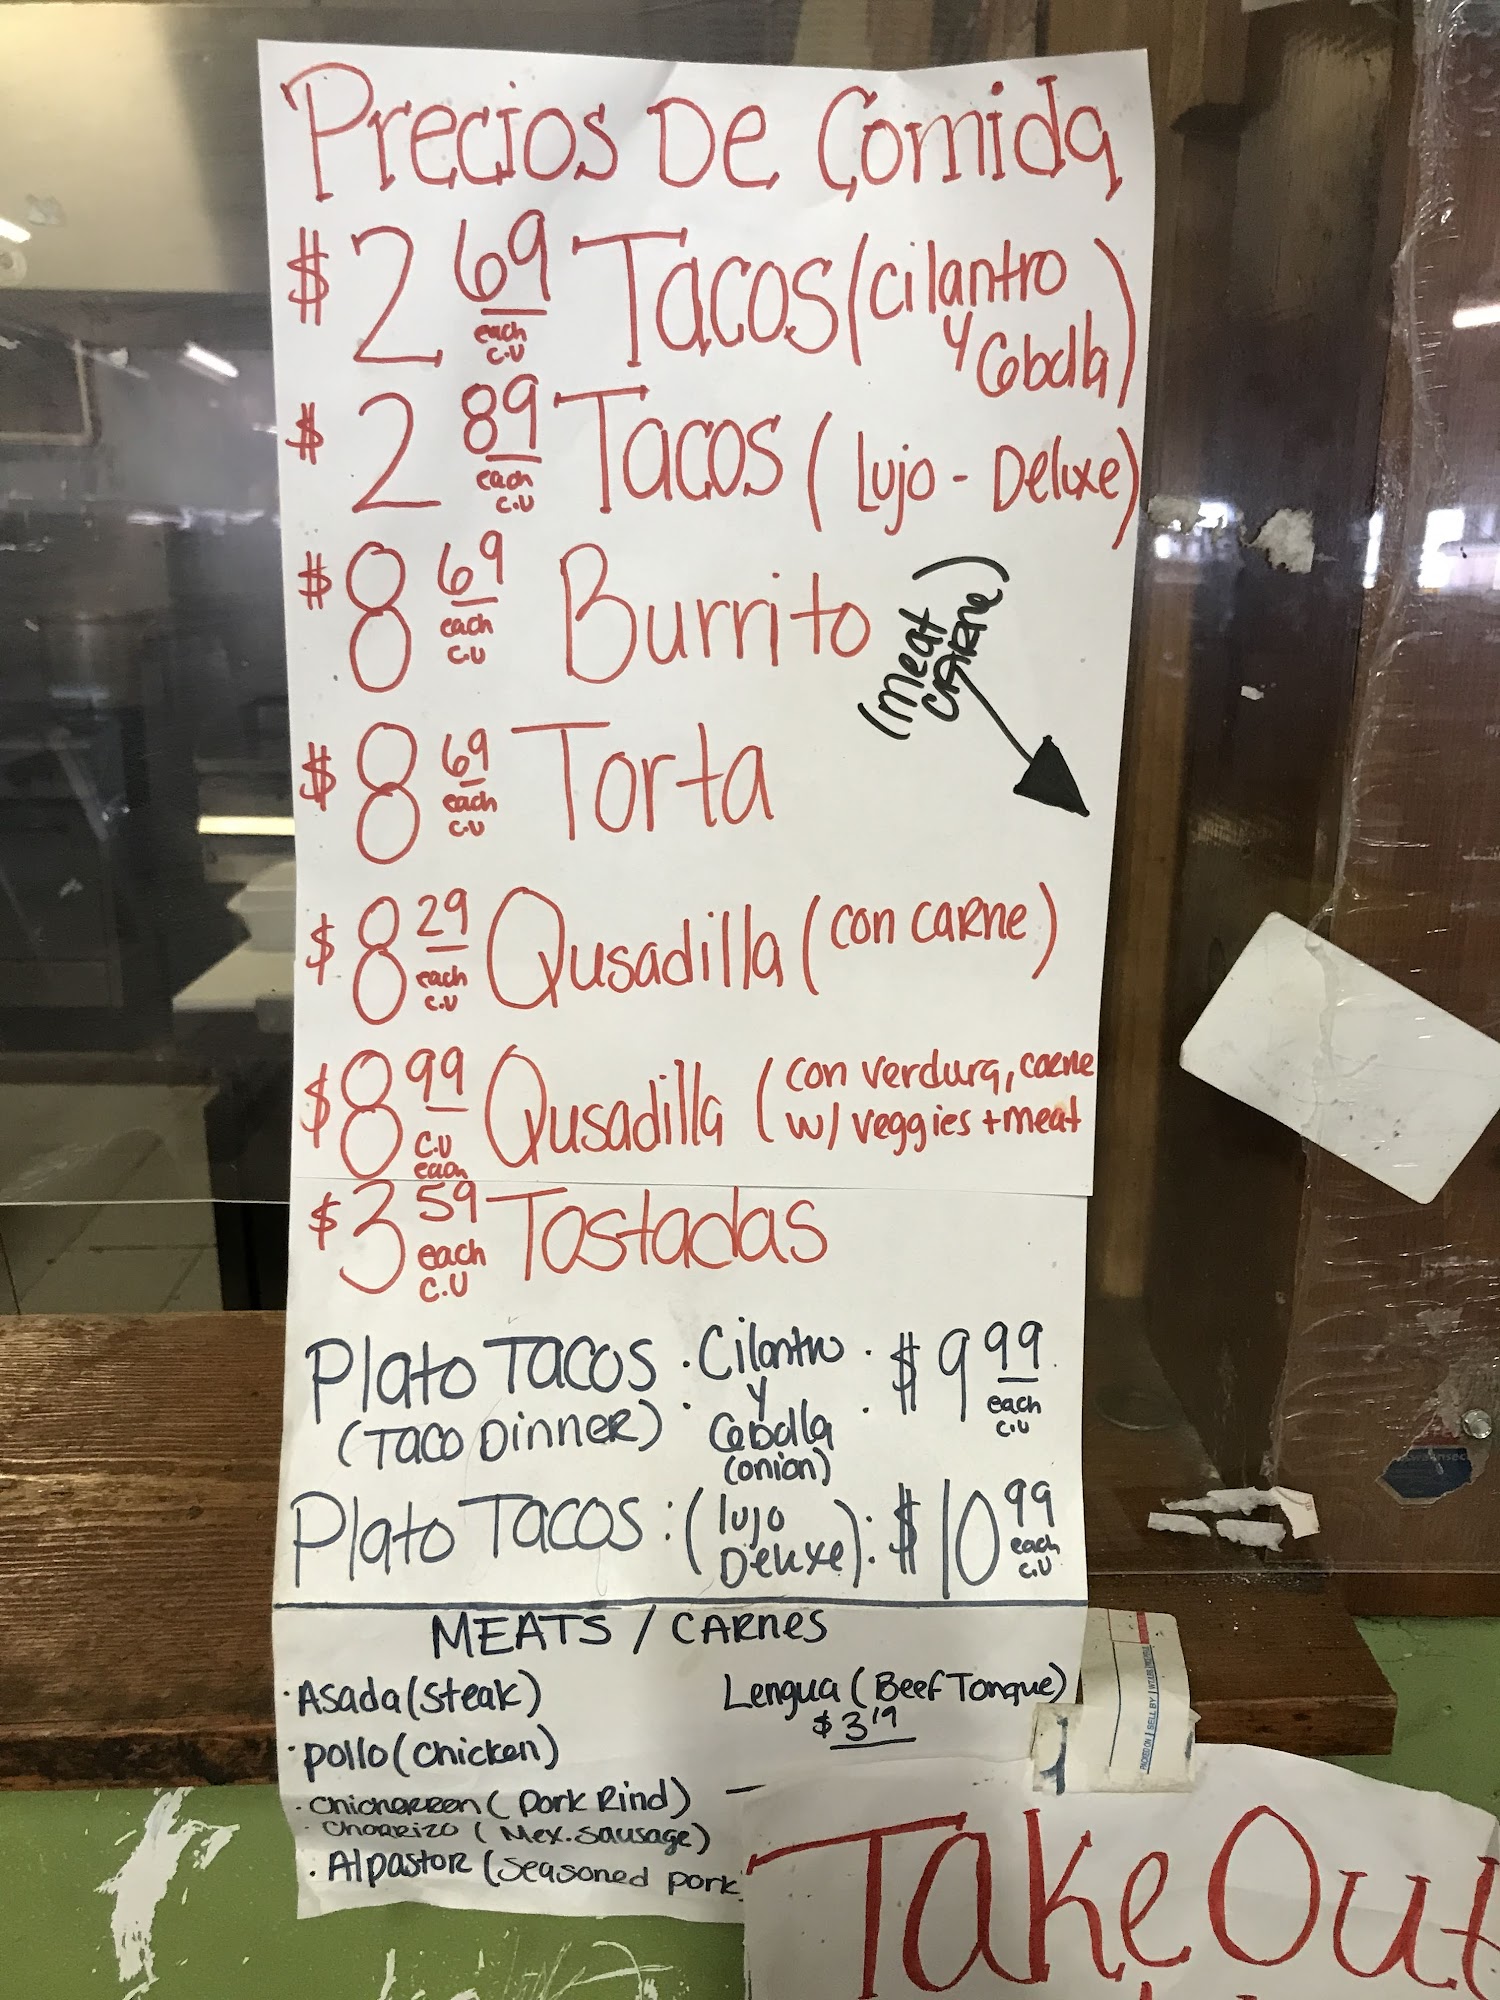 Precios De Comida
$2 69 each c.u Tacos (cilantro y Cebolla)
$2 89 each c.u Tacos (Lujo - Deluxe)
$8 69 each c.u Burrito
(meat CARne)
$8 69 each c.u Torta
$8 29 each c.u Qusadilla (con CARNe)
$8 99 c.u each Qusadilla (con verdura, carne
w/ veggies + meat
$3 59 each c.u Tostadas
Plato TACOS · Cilantro y Cebolla (onion) · $9 99 each c.u
(TACO DinneR)
Plato TACOS: (lujo Deluxe): $10 99 each c.u
MEATS / CARnes
· Asada (steak)
Lengua (Beef Tongue)
$3 19
· pollo (chicken)
· chicharron (Pork Rind)
· Chorrizo (Mex. Sausage)
· Al pastor (seasoned pork
Take Out